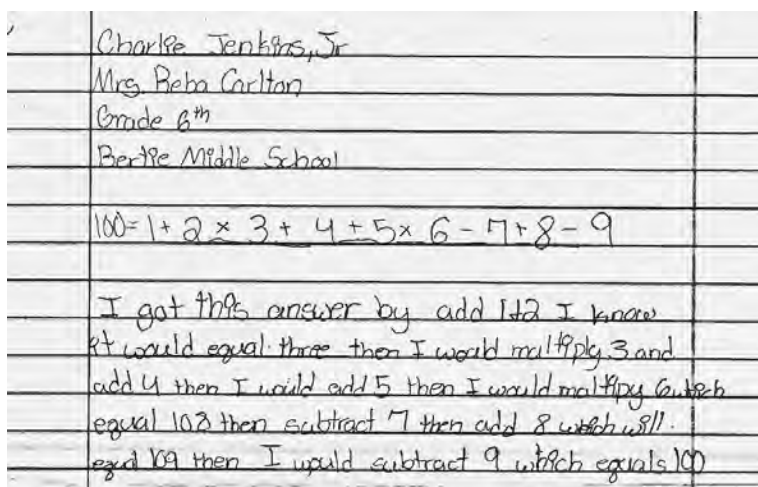 Charlie Jenkins, Jr
Mrs. Reba Carlton
Grade 6th
Bertie Middle School
100=1+2×3+4+5×6-7+8-9
I got this answer by add 1+2 I know
it would equal three then I would maltiply 3 and
add 4 then I would add 5 then I would maltipy 6 which
equal 108 then subtract 7 then add 8 which will
equal 109 then I would subtract 9 which equals 100